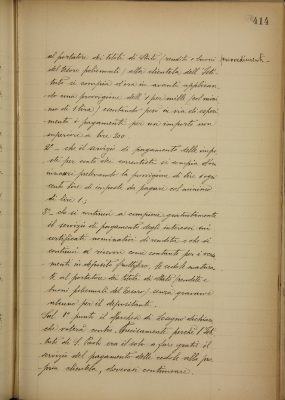 414
al portatore dei titoli di Stato (rendite e buoni
del Tesoro poliennali) alla clientela dell'Isti-
tuto si compia d'ora in avanti applican-
do una provvigione dell'1 per mille col mini-
mo di 1 lira
mento i pagamenti per un importo non
superiore a lire 300
2° - che il servizio di pagamento delle impo-
ste per conto dei correntisti si compia d'ora
innanzi prelevando la provvigione di lire 1 ogni
cento lire di imposte da pagare col minimo
di lire 1;
3° - che si continui a compiere gratuitamente
il servizio di pagamento degli interessi sui
certificati nominativi di rendita e che si
continui a ricevere come contante per i versa-
menti in deposito fruttifero, le cedole matura-
te al portatore dei titoli di Stato (rendite e
buoni poliennali del Tesoro) senza gravame
alcuno per il depositante.
Sul 1° punto il
che voterà contro. perché l'Isti-
tuto di S. Paolo era il solo a fare gratis il
servizio del pagamento delle cedole alla pro-
pria clientela, doversi continuare.